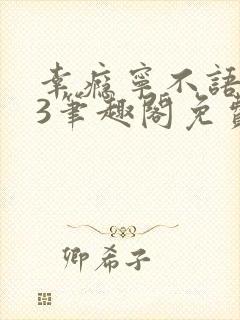 幸瘾寧不語
3筆趣閣免費
卿希子